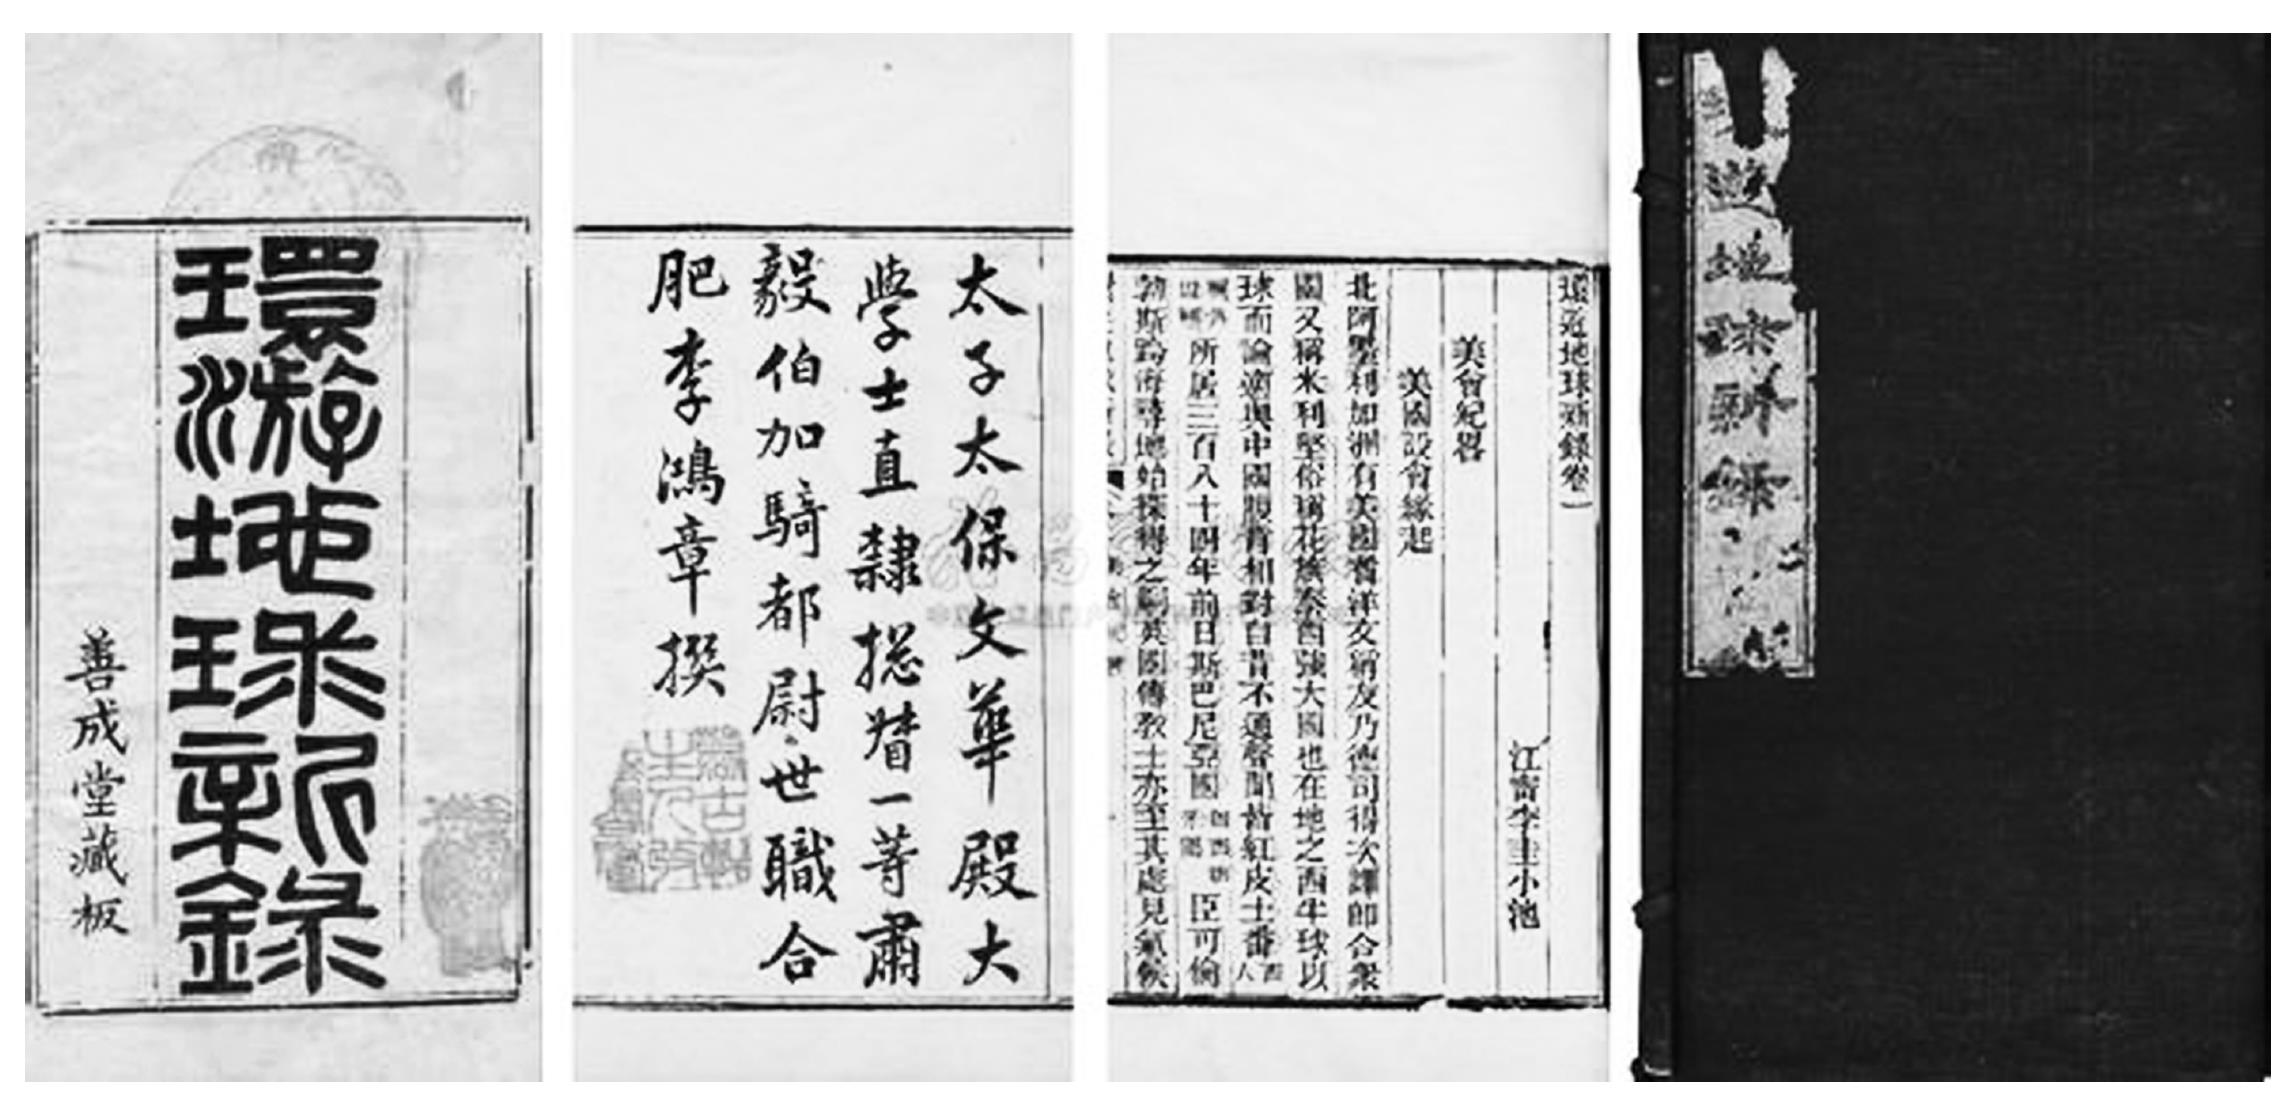 環游地球新錄
善成堂藏板
太子太保文華殿大
學士直隸捴督一等肅
毅伯加騎都尉世職合
肥李鴻章撰
環遊地球新錄卷一
江甯李圭小池
美會紀畧
美國設會緣起
北阿墨利加洲有美國者洋文稱友乃德司得次譯即合衆
國又稱米利堅俗稱花旗泰西強大國也在地之西半球以
球而論適與中國腹背相對自昔不通聲聞皆紅皮土番
所居三百八十四年前日斯巴尼亞國
臣可倫
勃斯跨海尋地始探得之嗣英國傳教士亦至其處見氣候
遊地球新錄